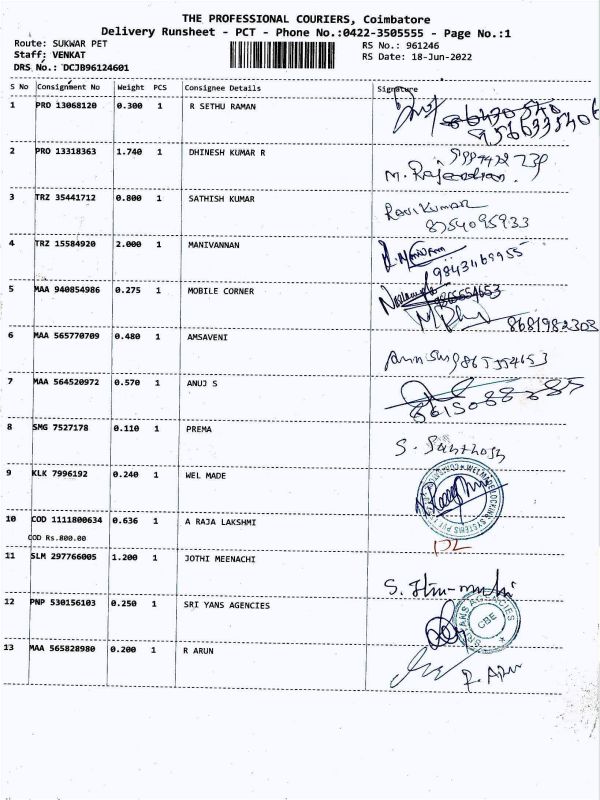 THE PROFESSIONAL COURIERS, Coimbatore
Delivery Runsheet - PCT - Phone No.:0422-3505555 - Page No.:1
Route: SUKWAR PET RS No.: 961246
Staff: VENKAT RS Date: 18-Jun-2022
DRS No.: DCJB96124601
S No Consignment No Weight PCS Consignee Details Signature
1 PRO 13068120 0.300 1 R SETHU RAMAN
2 PRO 13318363 1.740 1 DHINESH KUMAR R
M. Rajendran.
3 TRZ 35441712 0.800 1 SATHISH KUMAR Ravi Kumar
8754095933
4 TRZ 15584920 2.000 1 MANIVANNAN
5 MAA 940854986 0.275 1 MOBILE CORNER
8681982303
6 MAA 565770709 0.480 1 AMSAVENI
7 MAA 564520972 0.570 1 ANUJ S
8 SMG 7527178 0.110 1 PREMA S. Santhosh
9 KLK 7996192 0.240 1 WEL MADE
10 COD 1111800634 0.636 1 A RAJA LAKSHMI DL
COD Rs.800.00
11 SLM 297766005 1.200 1 JOTHI MEENACHI
12 PNP 530156103 0.250 1 SRI YANS AGENCIES
SRI YANS AGENCIES
CBE
13 MAA 565828980 0.200 1 R ARUN R. Arun